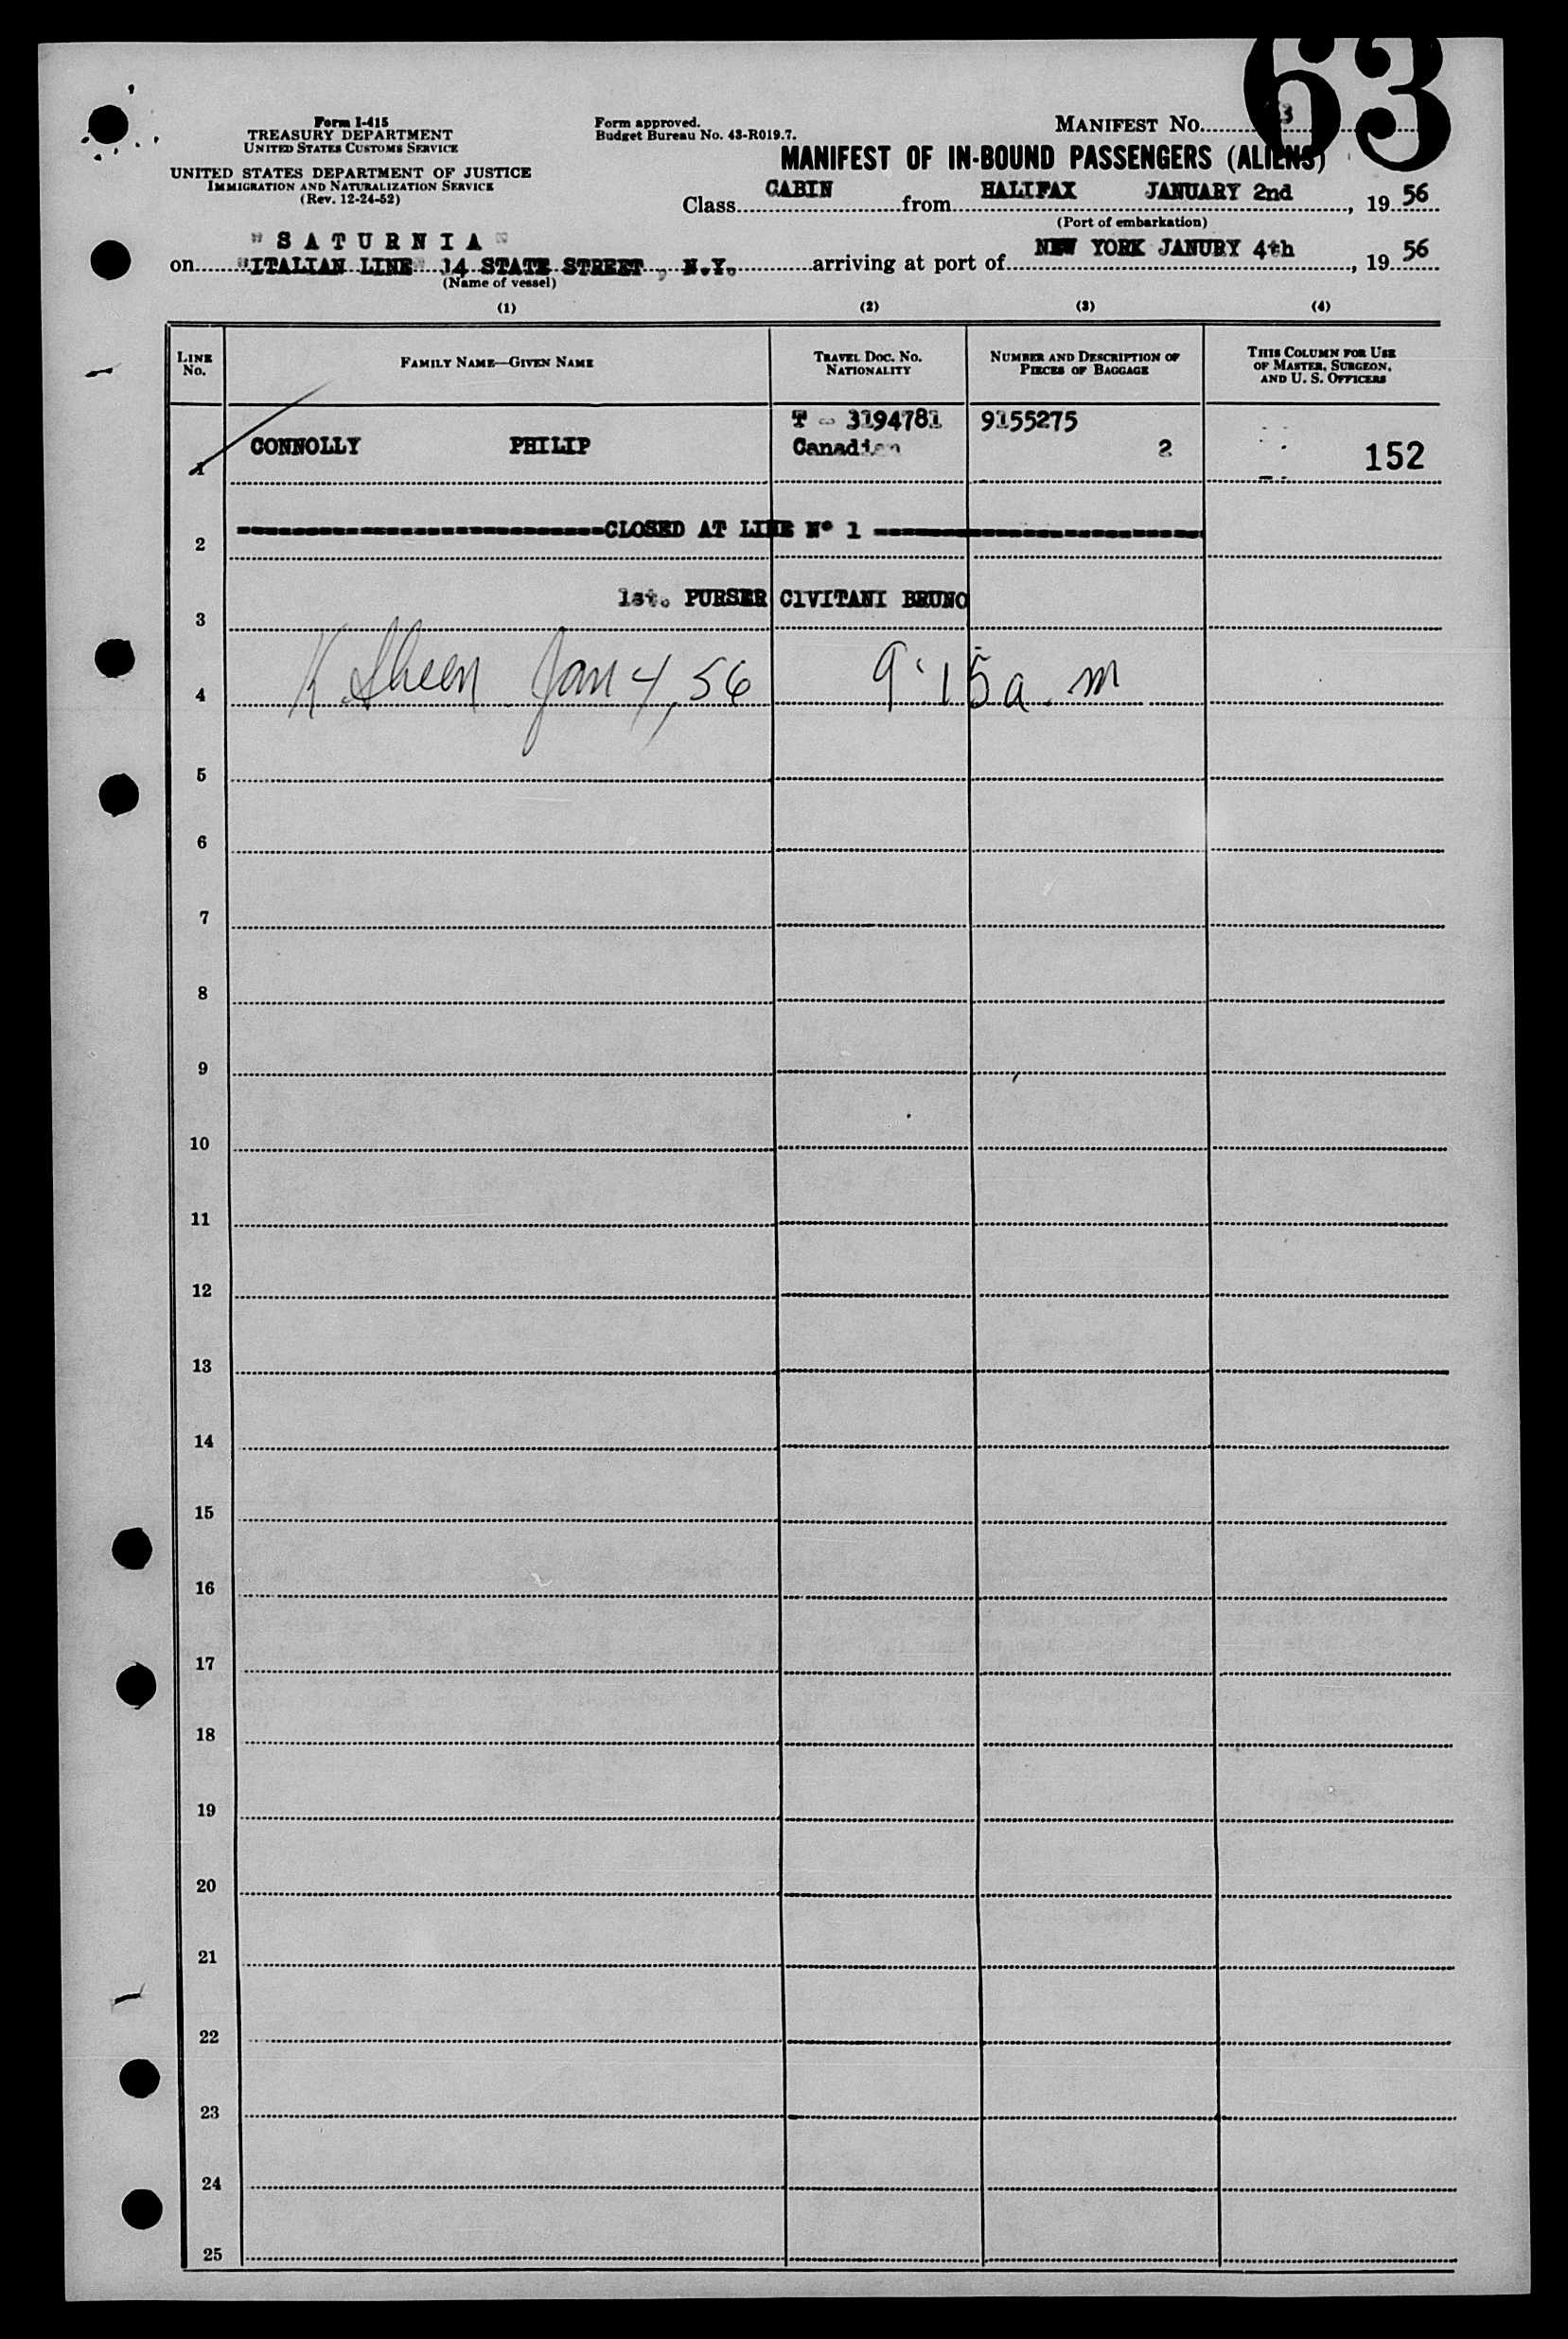 63
Form I-415
TREASURY DEPARTMENT
UNITED STATES CUSTOMS SERVICE
UNITED STATES DEPARTMENT OF JUSTICE
IMMIGRATION AND NATURALIZATION SERVICE
(Rev. 12-24-52)
Form approved.
Budget Bureau No. 43-R019.7.
MANIFEST No. 3
MANIFEST OF IN-BOUND PASSENGERS (ALIENS)
Class CABIN from HALIFAX JANUARY 2nd, 19 56
(Port of embarkation)
"SATURNIA"
on "ITALIAN LINE" 14 STATE STREET, N.Y. arriving at port of NEW YORK JANURY 4th, 19 56
(Name of vessel)
(1) (2) (3) (4)
LINE No. FAMILY NAME—GIVEN NAME TRAVEL DOC. No. NATIONALITY NUMBER AND DESCRIPTION OF PIECES OF BAGGAGE THIS COLUMN FOR USE OF MASTER, SURGEON, AND U. S. OFFICERS
T - 3194781 9155275
1 CONNOLLY PHILIP Canadian 2 152
2 CLOSED AT LINE N° 1
3 1st. PURSER CIVITANI BRUNO
4 K Sheen Jan 4, 56 9:15 a.m
5
6
7
8
9
10
11
12
13
14
15
16
17
18
19
20
21
22
23
24
25